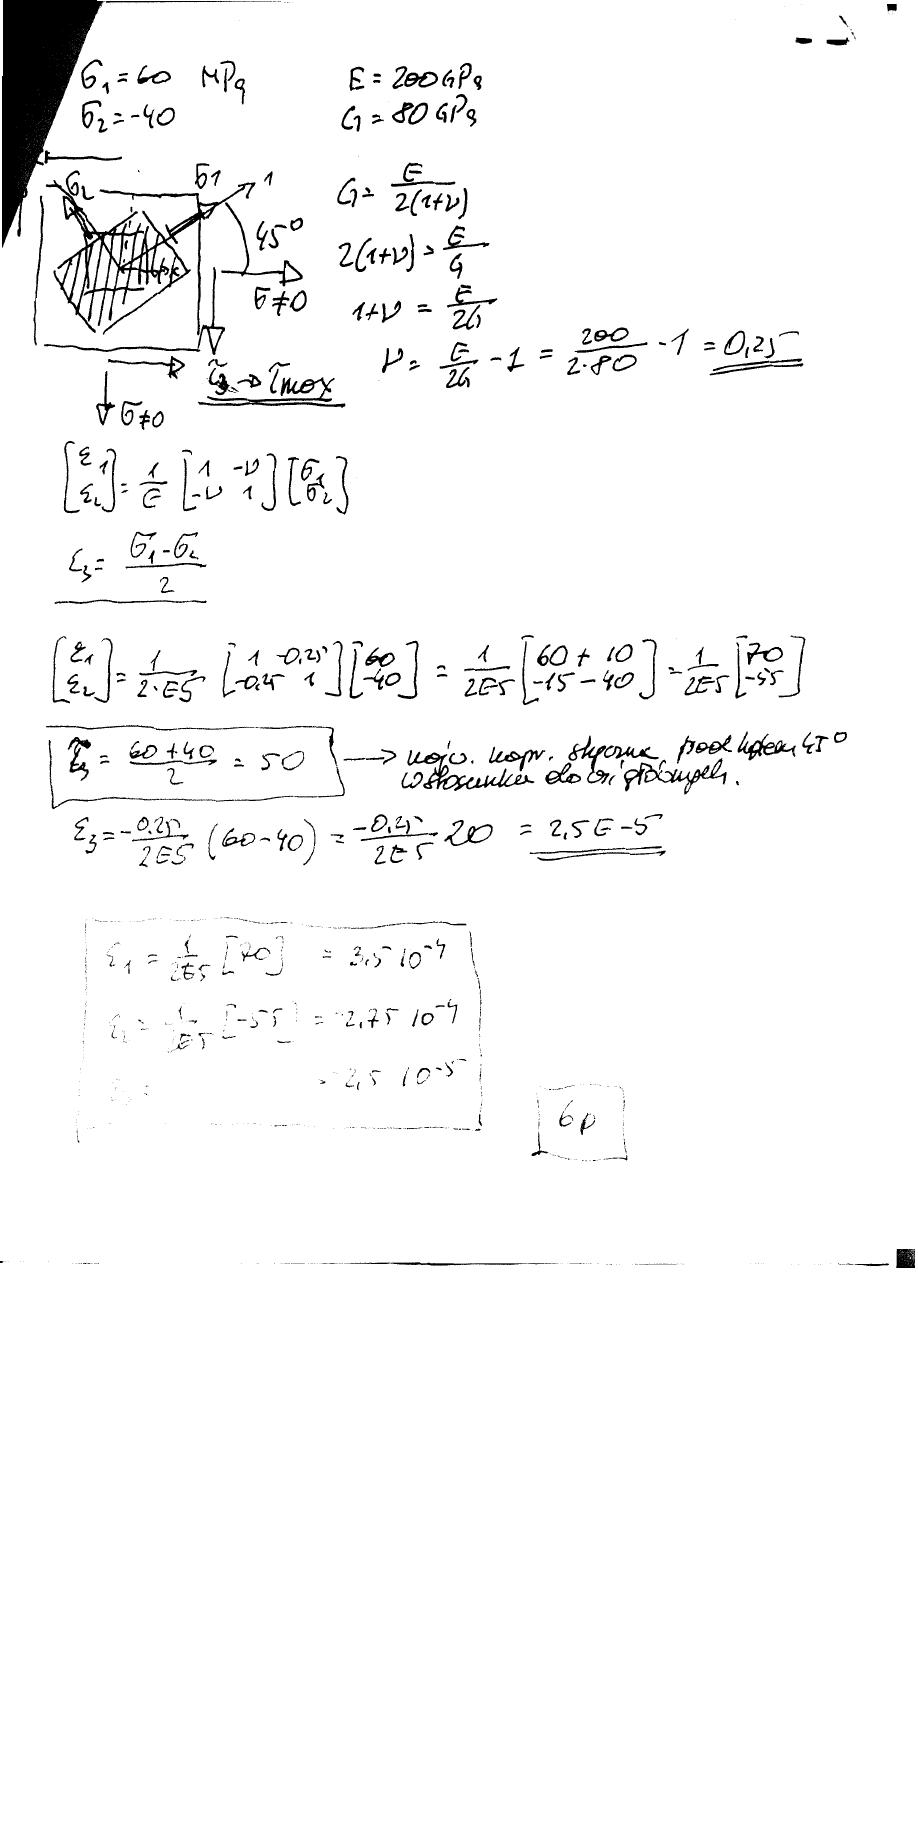 σ1 = 60 MPa E = 200 GPa
σ2 = -40 G = 80 GPa
σ2 σ1 1
45°
σ≠0
τ3 → τmax
σ≠0
G = E / 2(1+ν)
2(1+ν) = E/G
1+ν = E/2G
ν = E/2G - 1 = 200/2·80 - 1 = 0,25
[ε1 ε2] = 1/E [1 -ν -ν 1] [σ1 σ2]
ε3 = σ1-σ2 / 2
[ε1 ε2] = 1/2·E5 [1 -0.25 -0.25 1] [60 -40] = 1/2E5 [60 + 10 -15 - 40] = 1/2E5 [70 -55]
τ3 = 60+40 / 2 = 50 → najw. napr. styczne pod kątem 45°
w stosunku do osi głównych.
ε3 = -0.25/2E5 (60-40) = -0,25/2E5 20 = 2,5E-5
ε1 = 1/2E5 [70] = 3,5 10^-4
ε2 = 1/2E5 [-55] = -2,75 10^-4
= -2,5 10^-5
6p